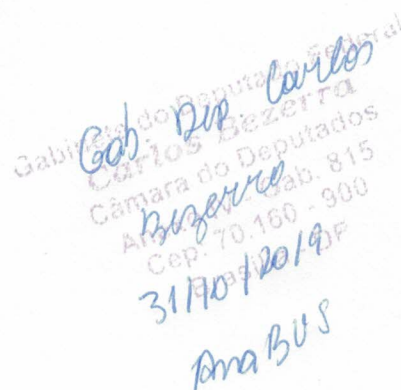 Gabinete do Deputado Federal
Carlos Bezerra
Câmara do Deputados
Gab. 815
Cep. 70.160 - 900
Brasília - DF
Gab Dep Carlos
Bezerra
31/10/2019